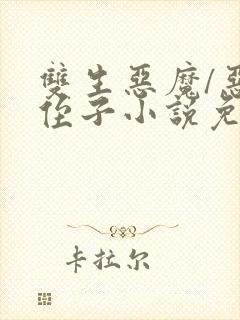 雙生惡魔/惡
侄子小說免
卡拉尔